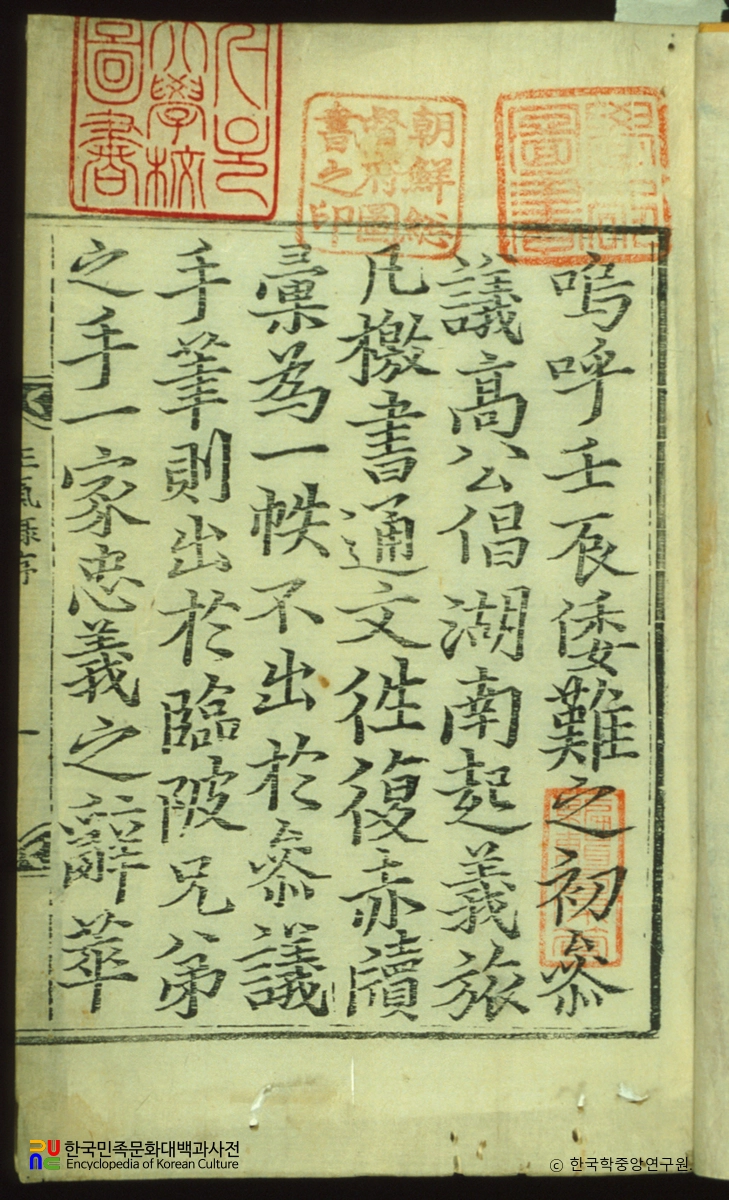 서울
大學校
圖書
朝鮮総
督府圖
書之印
嗚呼壬辰倭難之初叅
議高公倡湖南起義旅
凡檄書通文徃復赤牘
彙為一帙不出於叅議
手筆則出於臨陂兄弟
之手一家忠義之辭萃
正氣錄序
一
한국민족문화대백과사전
Encyclopedia of Korean Culture
© 한국학중앙연구원